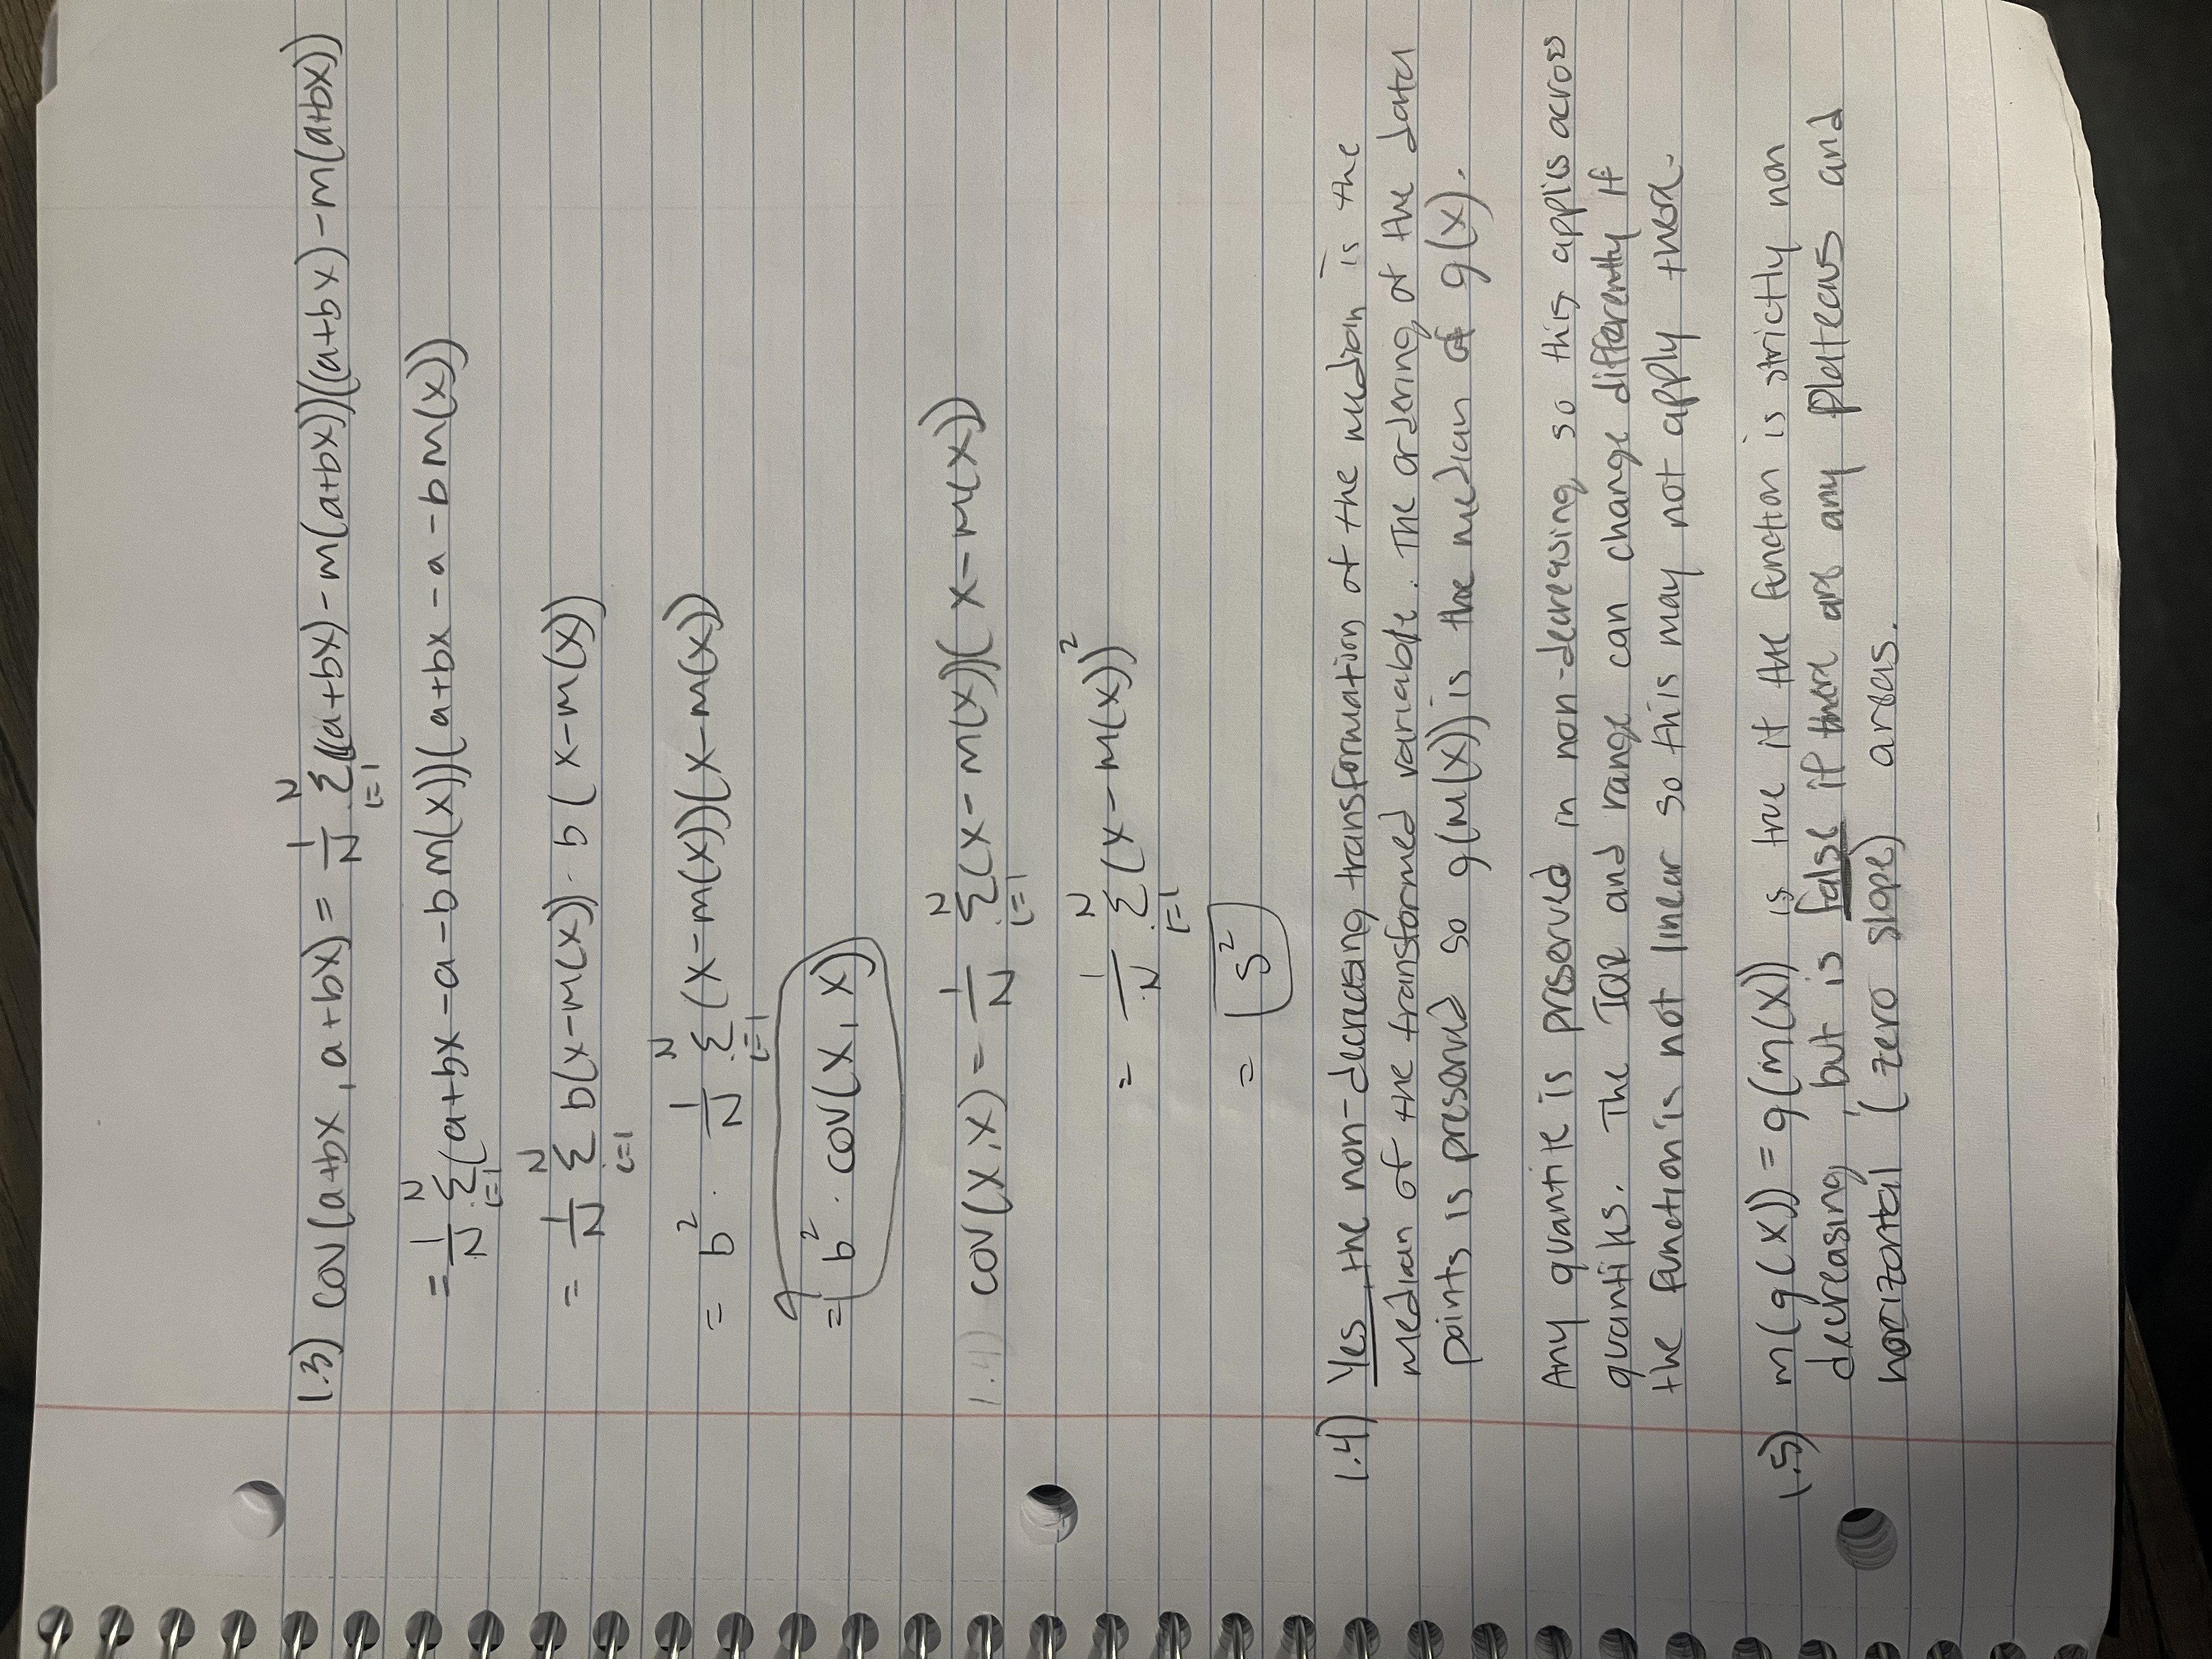 1.3) cov(a+bx, a+bx) = 1/N Σ_{i=1}^{N} ((a+bx) - m(a+bx))((a+bx) - m(a+bx))
= 1/N Σ_{i=1}^{N} (a+bx - a - b m(x))(a+bx - a - b m(x))
= 1/N Σ_{i=1}^{N} b(x-m(x)) · b(x-m(x))
= b² · 1/N Σ_{i=1}^{N} (x-m(x))(x-m(x))
= b² · cov(x, x)
1.4) cov(x,x) = 1/N Σ_{i=1}^{N} (x-m(x))(x-m(x))
= 1/N Σ_{i=1}^{N} (x-m(x))²
= s²
1.4) Yes, the non-decreasing transformation of the median is the
median of the transformed variable. The ordering of the data
points is preserved so g(m(x)) is the median of g(x).
Any quantile is preserved in non-decreasing so this applies across
quantiles. The IQR and range can change differently if
the function is not linear so this may not apply there.
1.5) m(g(x)) = g(m(x)) is true if the function is strictly non
decreasing, but is false if there are any plateaus and
horizontal (zero slope) areas.